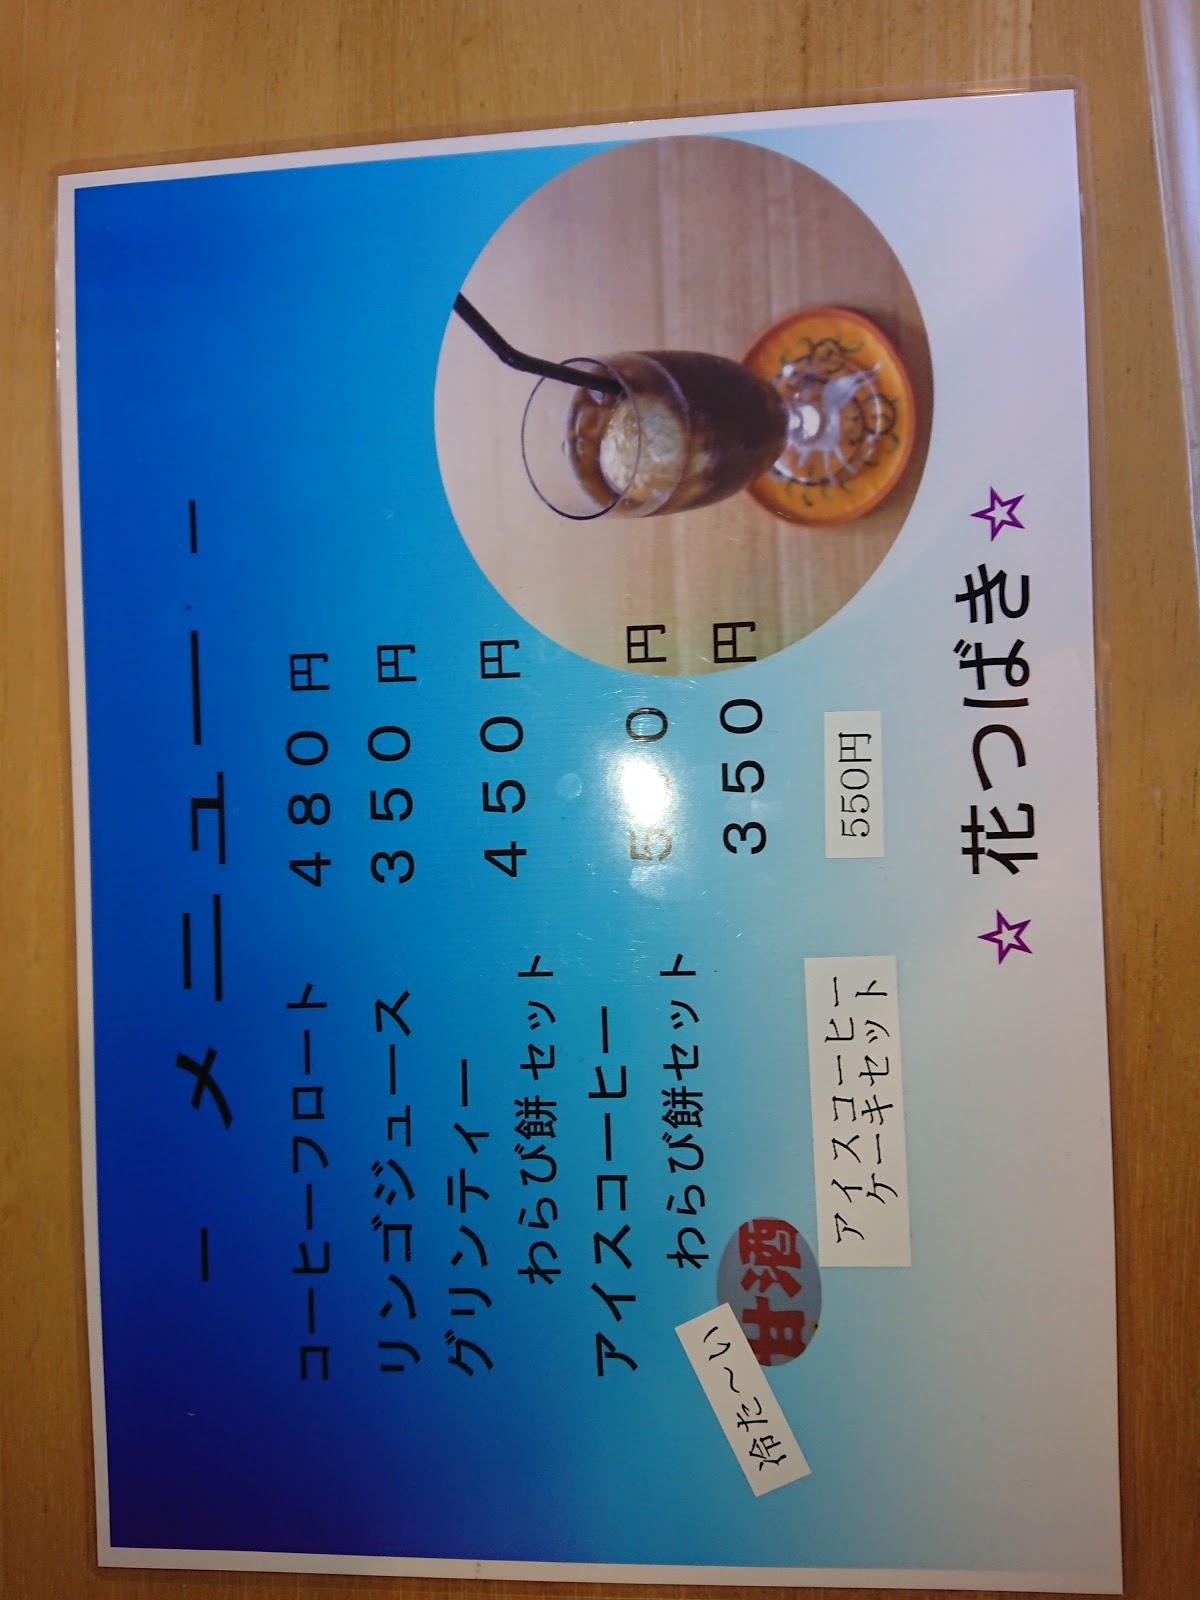 － メニュー －
コーヒーフロート ４８０ 円
リンゴジュース ３５０ 円
グリンティー
わらび餅セット ４５０ 円
アイスコーヒー
わらび餅セット 円
冷た～い
甘酒 ３５０ 円
アイスコーヒー
ケーキセット
550円
☆ 花つばき ☆